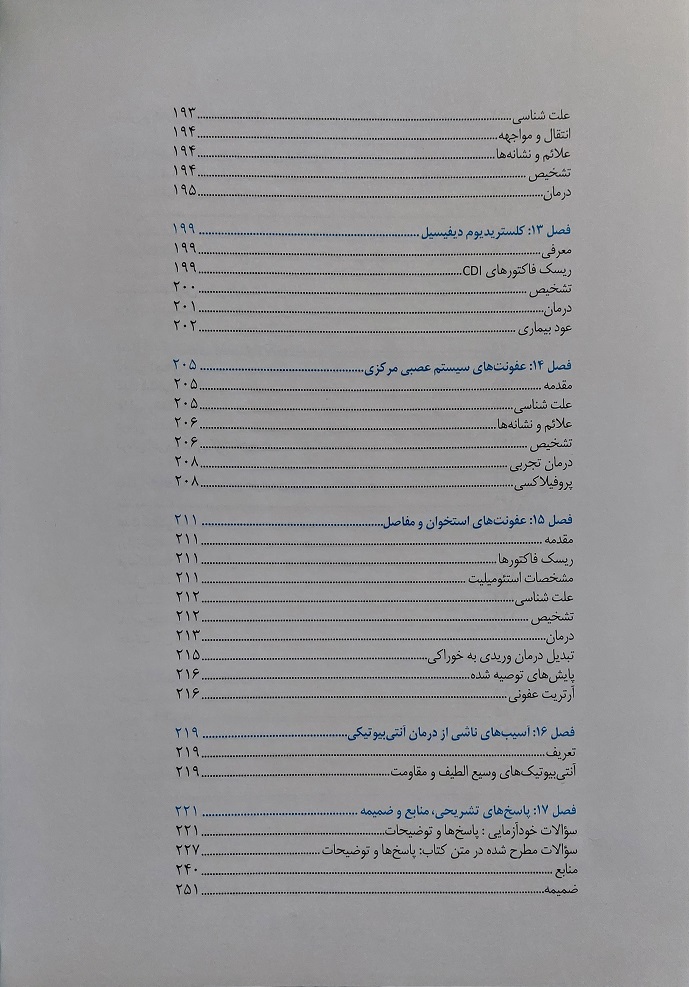 علت شناسی ........ ۱۹۳
انتقال و مواجهه ........ ۱۹۴
علائم و نشانه‌ها ........ ۱۹۴
تشخیص ........ ۱۹۴
درمان ........ ۱۹۵
فصل ۱۳: کلستریدیوم دیفیسیل ........ ۱۹۹
معرفی ........ ۱۹۹
ریسک فاکتورهای CDI ........ ۱۹۹
تشخیص ........ ۲۰۰
درمان ........ ۲۰۱
عود بیماری ........ ۲۰۲
فصل ۱۴: عفونت‌های سیستم عصبی مرکزی ........ ۲۰۵
مقدمه ........ ۲۰۵
علت شناسی ........ ۲۰۵
علائم و نشانه‌ها ........ ۲۰۶
تشخیص ........ ۲۰۶
درمان تجربی ........ ۲۰۸
پروفیلاکسی ........ ۲۰۸
فصل ۱۵: عفونت‌های استخوان و مفاصل ........ ۲۱۱
مقدمه ........ ۲۱۱
ریسک فاکتورها ........ ۲۱۱
مشخصات استئومیلیت ........ ۲۱۱
علت شناسی ........ ۲۱۲
تشخیص ........ ۲۱۲
درمان ........ ۲۱۳
تبدیل درمان وریدی به خوراکی ........ ۲۱۵
پایش‌های توصیه شده ........ ۲۱۶
آرتریت عفونی ........ ۲۱۶
فصل ۱۶: آسیب‌های ناشی از درمان آنتی‌بیوتیکی ........ ۲۱۹
تعریف ........ ۲۱۹
آنتی‌بیوتیک‌های وسیع الطیف و مقاومت ........ ۲۱۹
فصل ۱۷: پاسخ‌های تشریحی، منابع و ضمیمه ........ ۲۲۱
سؤالات خودآزمایی : پاسخ‌ها و توضیحات ........ ۲۲۱
سؤالات مطرح شده در متن کتاب: پاسخ‌ها و توضیحات ........ ۲۲۷
منابع ........ ۲۴۰
ضمیمه ........ ۲۵۱